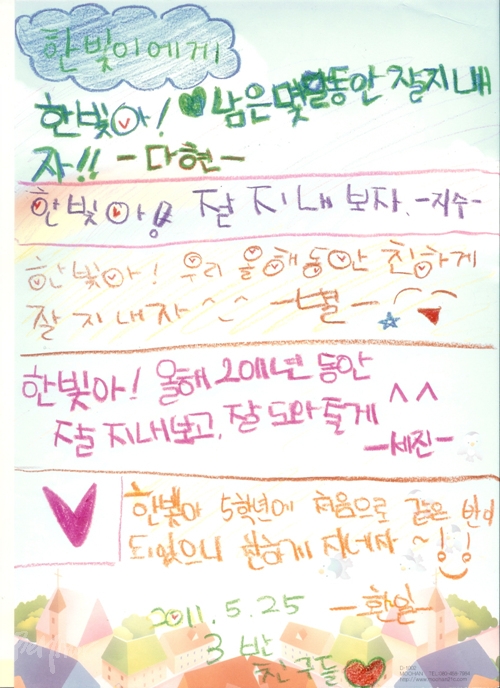 한빛이에게
한빛아! 남은 몇월동안 잘지내
자!! -다현-
한빛아! 잘 지내 보자. -지수-
한빛아! 우리 올해동안 친하게
잘 지내자 ^_^ -별-
한빛아! 올해 2011년 동안
잘 지내보고, 잘 도와 줄게 ^^
-세진-
한빛아 5학년에 처음으로 같은 반이
되었으니 친하게 지네자~!!
2011.5.25 -환일-
3반
친구들